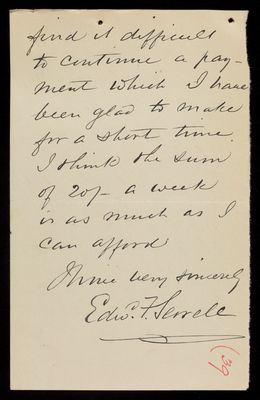 find it difficult
to continue a pay-
ment which I have
been glad to make
for a short time.
I think the sum
of 20/- a week
is as much as I
can afford
Yours very sincerely
Edwd. F.